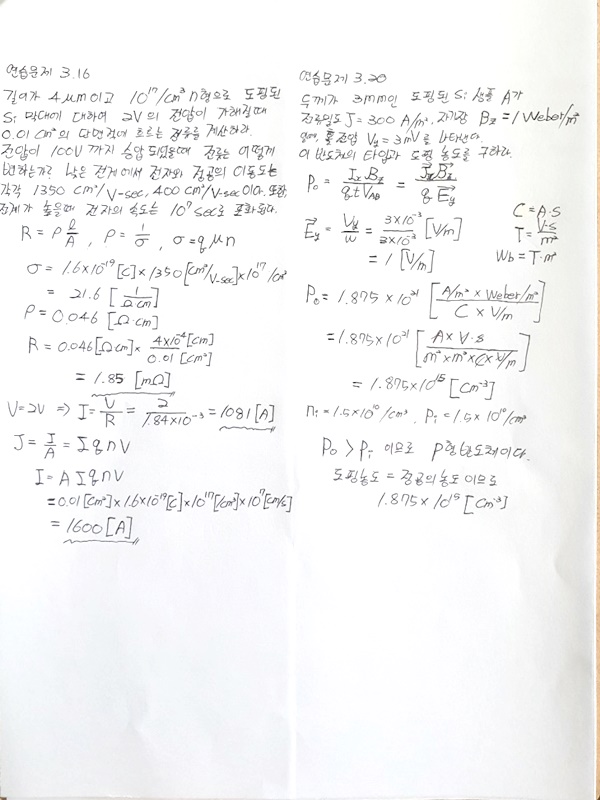 연습문제 3.16
길이가 4μm이고 10¹⁷/cm³ n형으로 도핑된
Si 막대에 대하여 2V의 전압이 가해질때
0.01 cm²의 단면적에 흐르는 전류를 계산하라.
전압이 100V 까지 승압 되었을때 전류는 어떻게
변하는가? 낮은 전계에서 전자와 정공의 이동도는
각각 1350 cm²/V-sec, 400 cm²/V-sec 이다. 또한,
전계가 높을때 전자의 속도는 10⁷ sec로 포화된다.
R = ρ l/A , ρ = 1/σ , σ = qμn
σ = 1.6×10⁻¹⁹[C]×1350[cm²/V-sec]×10¹⁷/cm³
= 21.6 [1/Ω·cm]
ρ = 0.046 [Ω·cm]
R = 0.046[Ω·cm]× 4×10⁻⁴[cm]/0.01 [cm²]
= 1.85 [mΩ]
V=2V ⇒ I = V/R = 2/1.84×10⁻³ = 1081 [A]
J = I/A = Σqnv
I = AΣqnv
=0.01[cm²]×1.6×10⁻¹⁹[C]×10¹⁷[/cm³]×10⁷[cm/s]
= 1600 [A]
연습문제 3.20
두께가 3mm인 도핑된 Si 샘플 A가
전류밀도 J = 300 A/m², 자기장 Bz = 1 Weber/m²
홀 전압 Vy = 3mV를 나타낸다.
이 반도체의 타입과 도핑 농도를 구하라.
P₀ = IxBz/qtVAB = JxBz/qEy
C = A·S
Ey = Vy/w = 3×10⁻³/3×10⁻³ [V/m]
T = V·s/m²
= 1 [V/m]
Wb = T·m²
P₀ = 1.875×10²¹ [A/m² × Weber/m² / C × V/m]
=1.875×10²¹ [A×V·s / m²×m²×C×V/m]
= 1.875×10¹⁵ [cm⁻³]
nᵢ=1.5×10¹⁰/cm³, Pᵢ=1.5×10¹⁰/cm³
P₀ > Pᵢ 이므로 P형 반도체이다.
도핑농도 = 정공의 농도 이므로
1.875×10¹⁵ [cm⁻³]